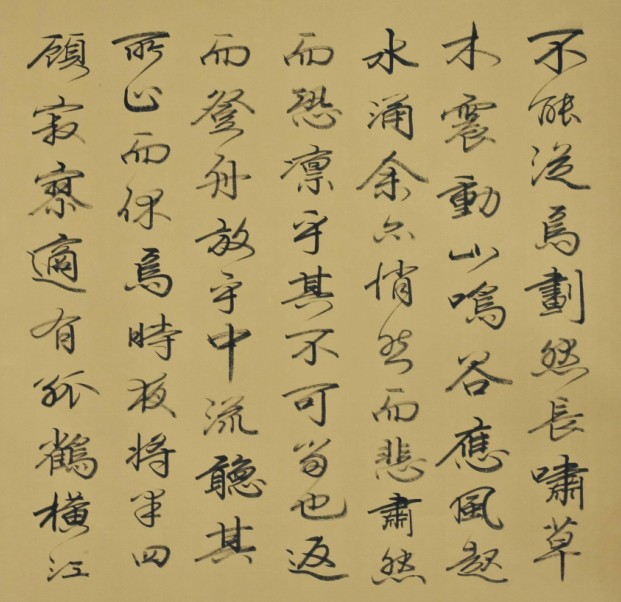 不能從焉劃然長嘯草
木震動山鳴谷應風起
水涌余亦悄然而悲肅然
而恐凛乎其不可留也返
而登舟放乎中流聽其
所止而休焉時夜將半四
顧寂寥適有孤鶴橫江